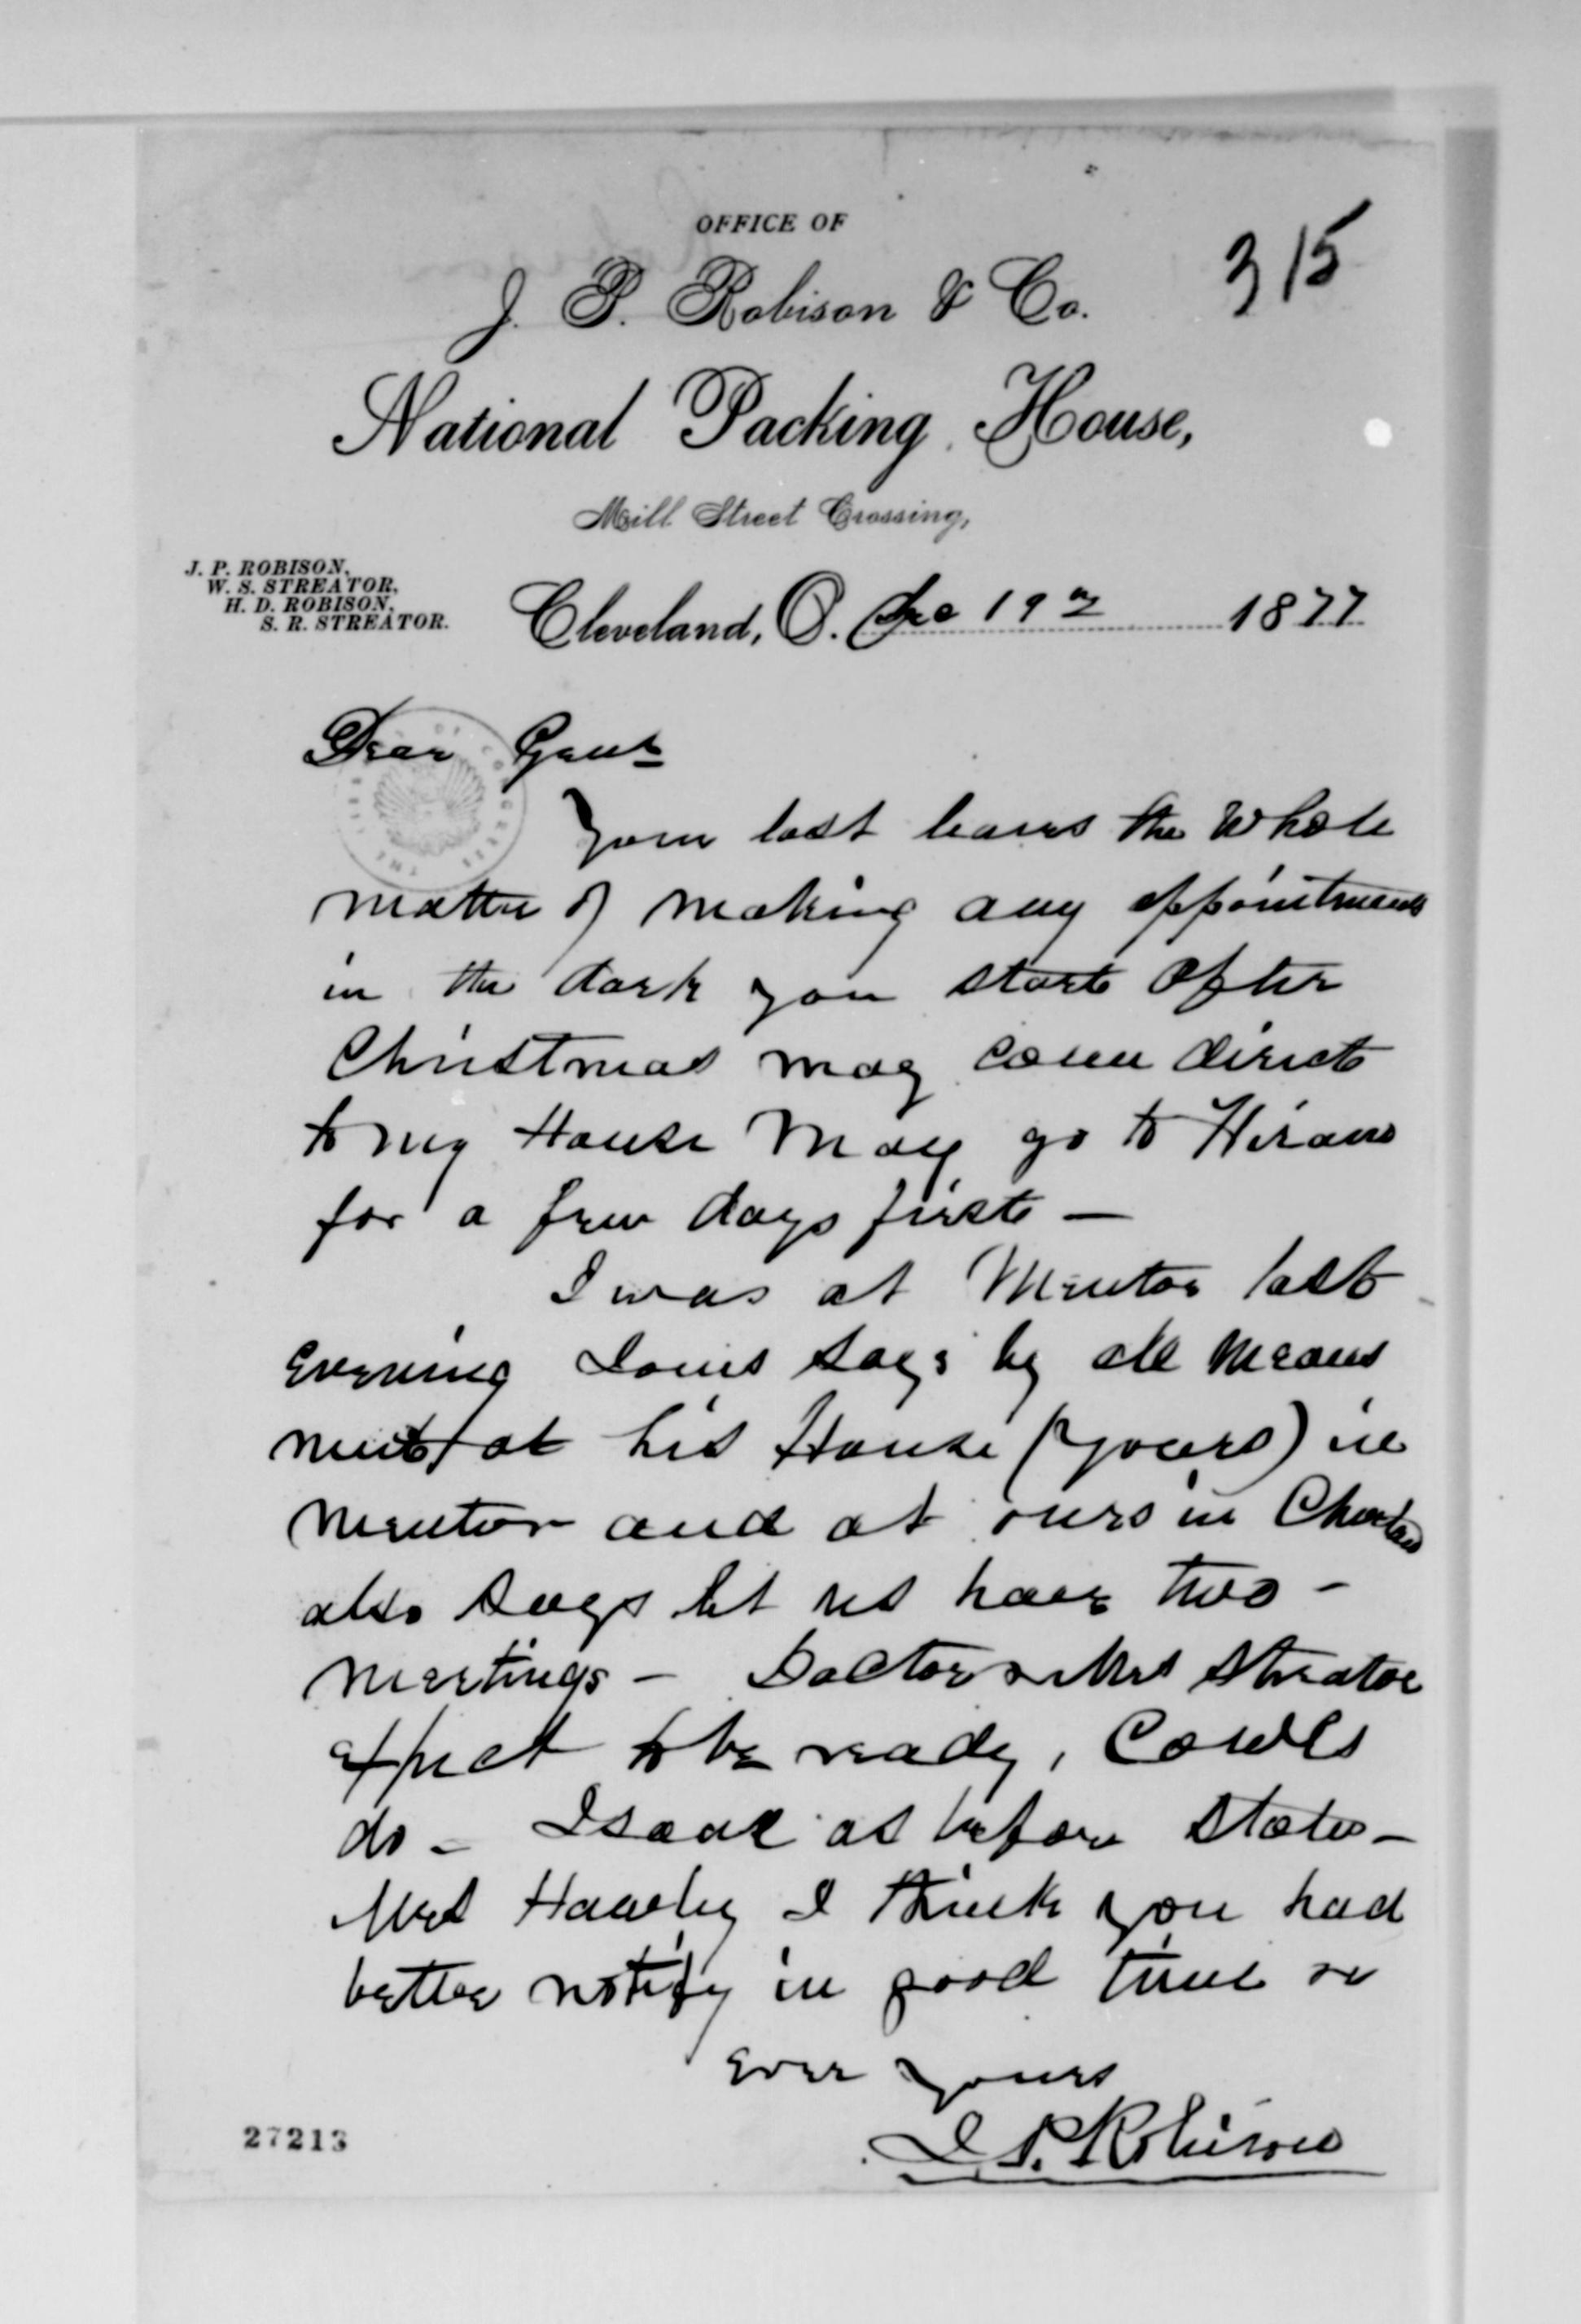 OFFICE OF
315
J. P. Robison & Co.
National Packing House,
Mill Street Crossing,
J. P. ROBISON,
W. S. STREATOR,
H. D. ROBISON,
S. R. STREATOR.
Cleveland, O. Dec 19 1877
Dear
Your last leaves the whole
matter of making any appointment
in the dark you start after
Christmas may come direct
to my House may go to Hiram
for a few days first —
I was at Mentor last
evening Louis says by all means
meet at his House (yours) in
Mentor and at ours in
also says let us have two -
meetings - Doctor & Mrs Streator
expect to be ready, Cowles
do - Isaac as before states -
Mrs I think you had
better notify in good time
Ever yours
J. P. Robison
27213